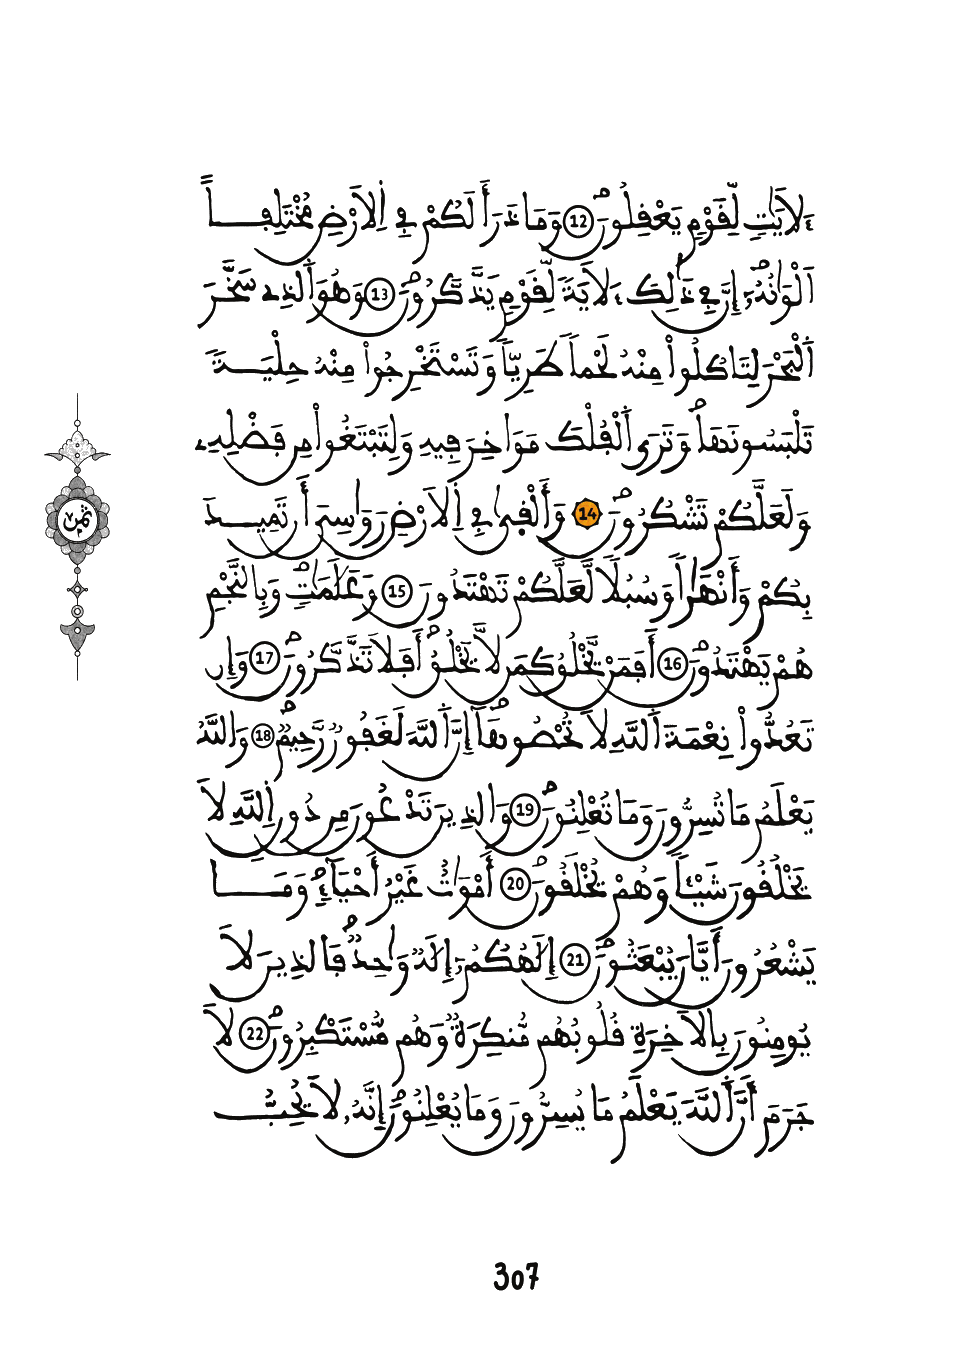 ءَلَايَٰتٍ لِّقَوْمٍ يَعْقِلُونَ 12 وَمَا ذَرَأَ لَكُمْ فِي اِلَارْضِ مُخْتَلِفاً
اَلْوَٰنُهُۥٓ إِنَّ فِي ذَٰلِكَ ءَلَايَةً لِّقَوْمٍ يَذَّكَّرُونَ 13 وَهُوَ اَلذِے سَخَّرَ
اَلْبَحْرَ لِتَاكُلُواْ مِنْهُ لَحْماً طَرِيّاً وَتَسْتَخْرِجُواْ مِنْهُ حِلْيَةً
تَلْبَسُونَهَا وَتَرَى اَلْفُلْكَ مَوَاخِرَ فِيهِ وَلِتَبْتَغُواْ مِن فَضْلِهِۦ
وَلَعَلَّكُمْ تَشْكُرُونَ 14 وَأَلْقٜىٰ فِي اِلَارْضِ رَوَٰسِيَ أَن تَمِيدَ
بِكُمْ وَأَنْهَٰراً وَسُبُلًا لَّعَلَّكُمْ تَهْتَدُونَ 15 وَعَلَٰمَٰتٍ وَبِالنَّجْمِ
هُمْ يَهْتَدُونَ 16 أَفَمَنْ يَّخْلُقُ كَمَن لَّا يَخْلُقُ أَفَلَا تَذَّكَّرُونَ 17 وَإِن
تَعُدُّواْ نِعْمَةَ اَللَّهِ لَا تُحْصُوهَا إِنَّ اَللَّهَ لَغَفُورٌ رَّحِيمٌ 18 وَاللَّهُ
يَعْلَمُ مَا تُسِرُّونَ وَمَا تُعْلِنُونَ 19 وَالذِينَ تَدْعُونَ مِن دُونِ اِللَّهِ لَا
يَخْلُقُونَ شَيْـٔاً وَهُمْ يُخْلَقُونَ 20 أَمْوَٰتٌ غَيْرُ أَحْيَآءٍ وَمَا
يَشْعُرُونَ أَيَّانَ يُبْعَثُونَ 21 إِلَٰهُكُمْۥٓ إِلَٰهٌ وَٰحِدٌ فَالذِينَ لَا
يُومِنُونَ بِالَاخِرَةِ قُلُوبُهُم مُّنكِرَةٌ وَهُم مُّسْتَكْبِرُونَ 22 لَا
جَرَمَ أَنَّ اَللَّهَ يَعْلَمُ مَا يُسِرُّونَ وَمَا يُعْلِنُونَ إِنَّهُۥ لَا يُحِبُّ
307